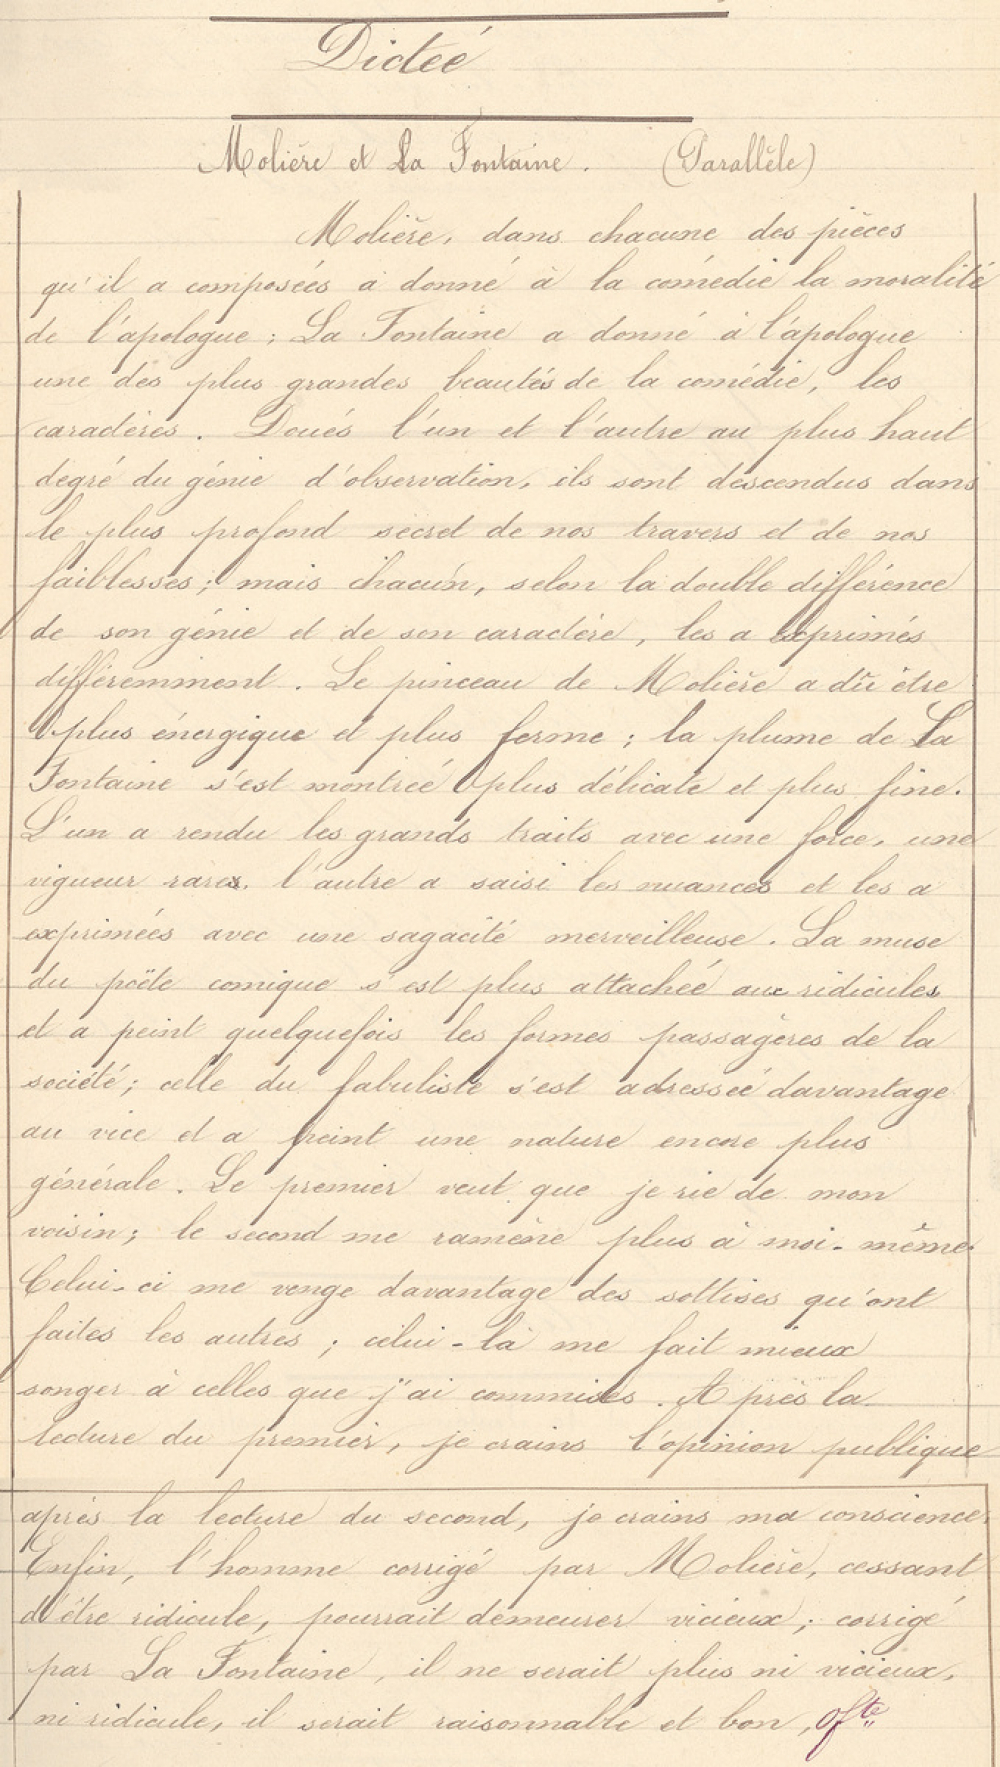 Dictée
Molière et La Fontaine. (Parallèle)
Molière, dans chacune des pièces
qu'il a composées a donné à la comédie la moralité
de l'apologue ; La Fontaine a donné à l'apologue
une des plus grandes beautés de la comédie, les
caractères. Doués l'un et l'autre au plus haut
degré du génie d'observation, ils sont descendus dans
le plus profond secret de nos travers et de nos
faiblesses ; mais chacun, selon la double différence
de son génie et de son caractère, les a exprimés
différemment. Le pinceau de Molière a dû être
plus énergique et plus ferme ; la plume de La
Fontaine s'est montrée plus délicate et plus fine.
L'un a rendu les grands traits avec une force, une
vigueur rares. l'autre a saisi les nuances et les a
exprimées avec une sagacité merveilleuse. La muse
du poëte comique s'est plus attachée aux ridicules
et a peint quelquefois les formes passagères de la
société ; celle du fabuliste s'est adressée davantage
au vice et a peint une nature encore plus
générale. Le premier veut que je rie de mon
voisin ; le second me ramène plus à moi-même.
Celui-ci me venge davantage des sottises qu'ont
faites les autres ; celui-là me fait mieux
songer à celles que j'ai commises. Après la
lecture du premier, je crains l'opinion publique
après la lecture du second, je crains ma conscience.
Enfin, l'homme corrigé par Molière, cessant
d'être ridicule, pourrait demeurer vicieux ; corrigé
par La Fontaine, il ne serait plus ni vicieux,
ni ridicule, il serait raisonnable et bon,